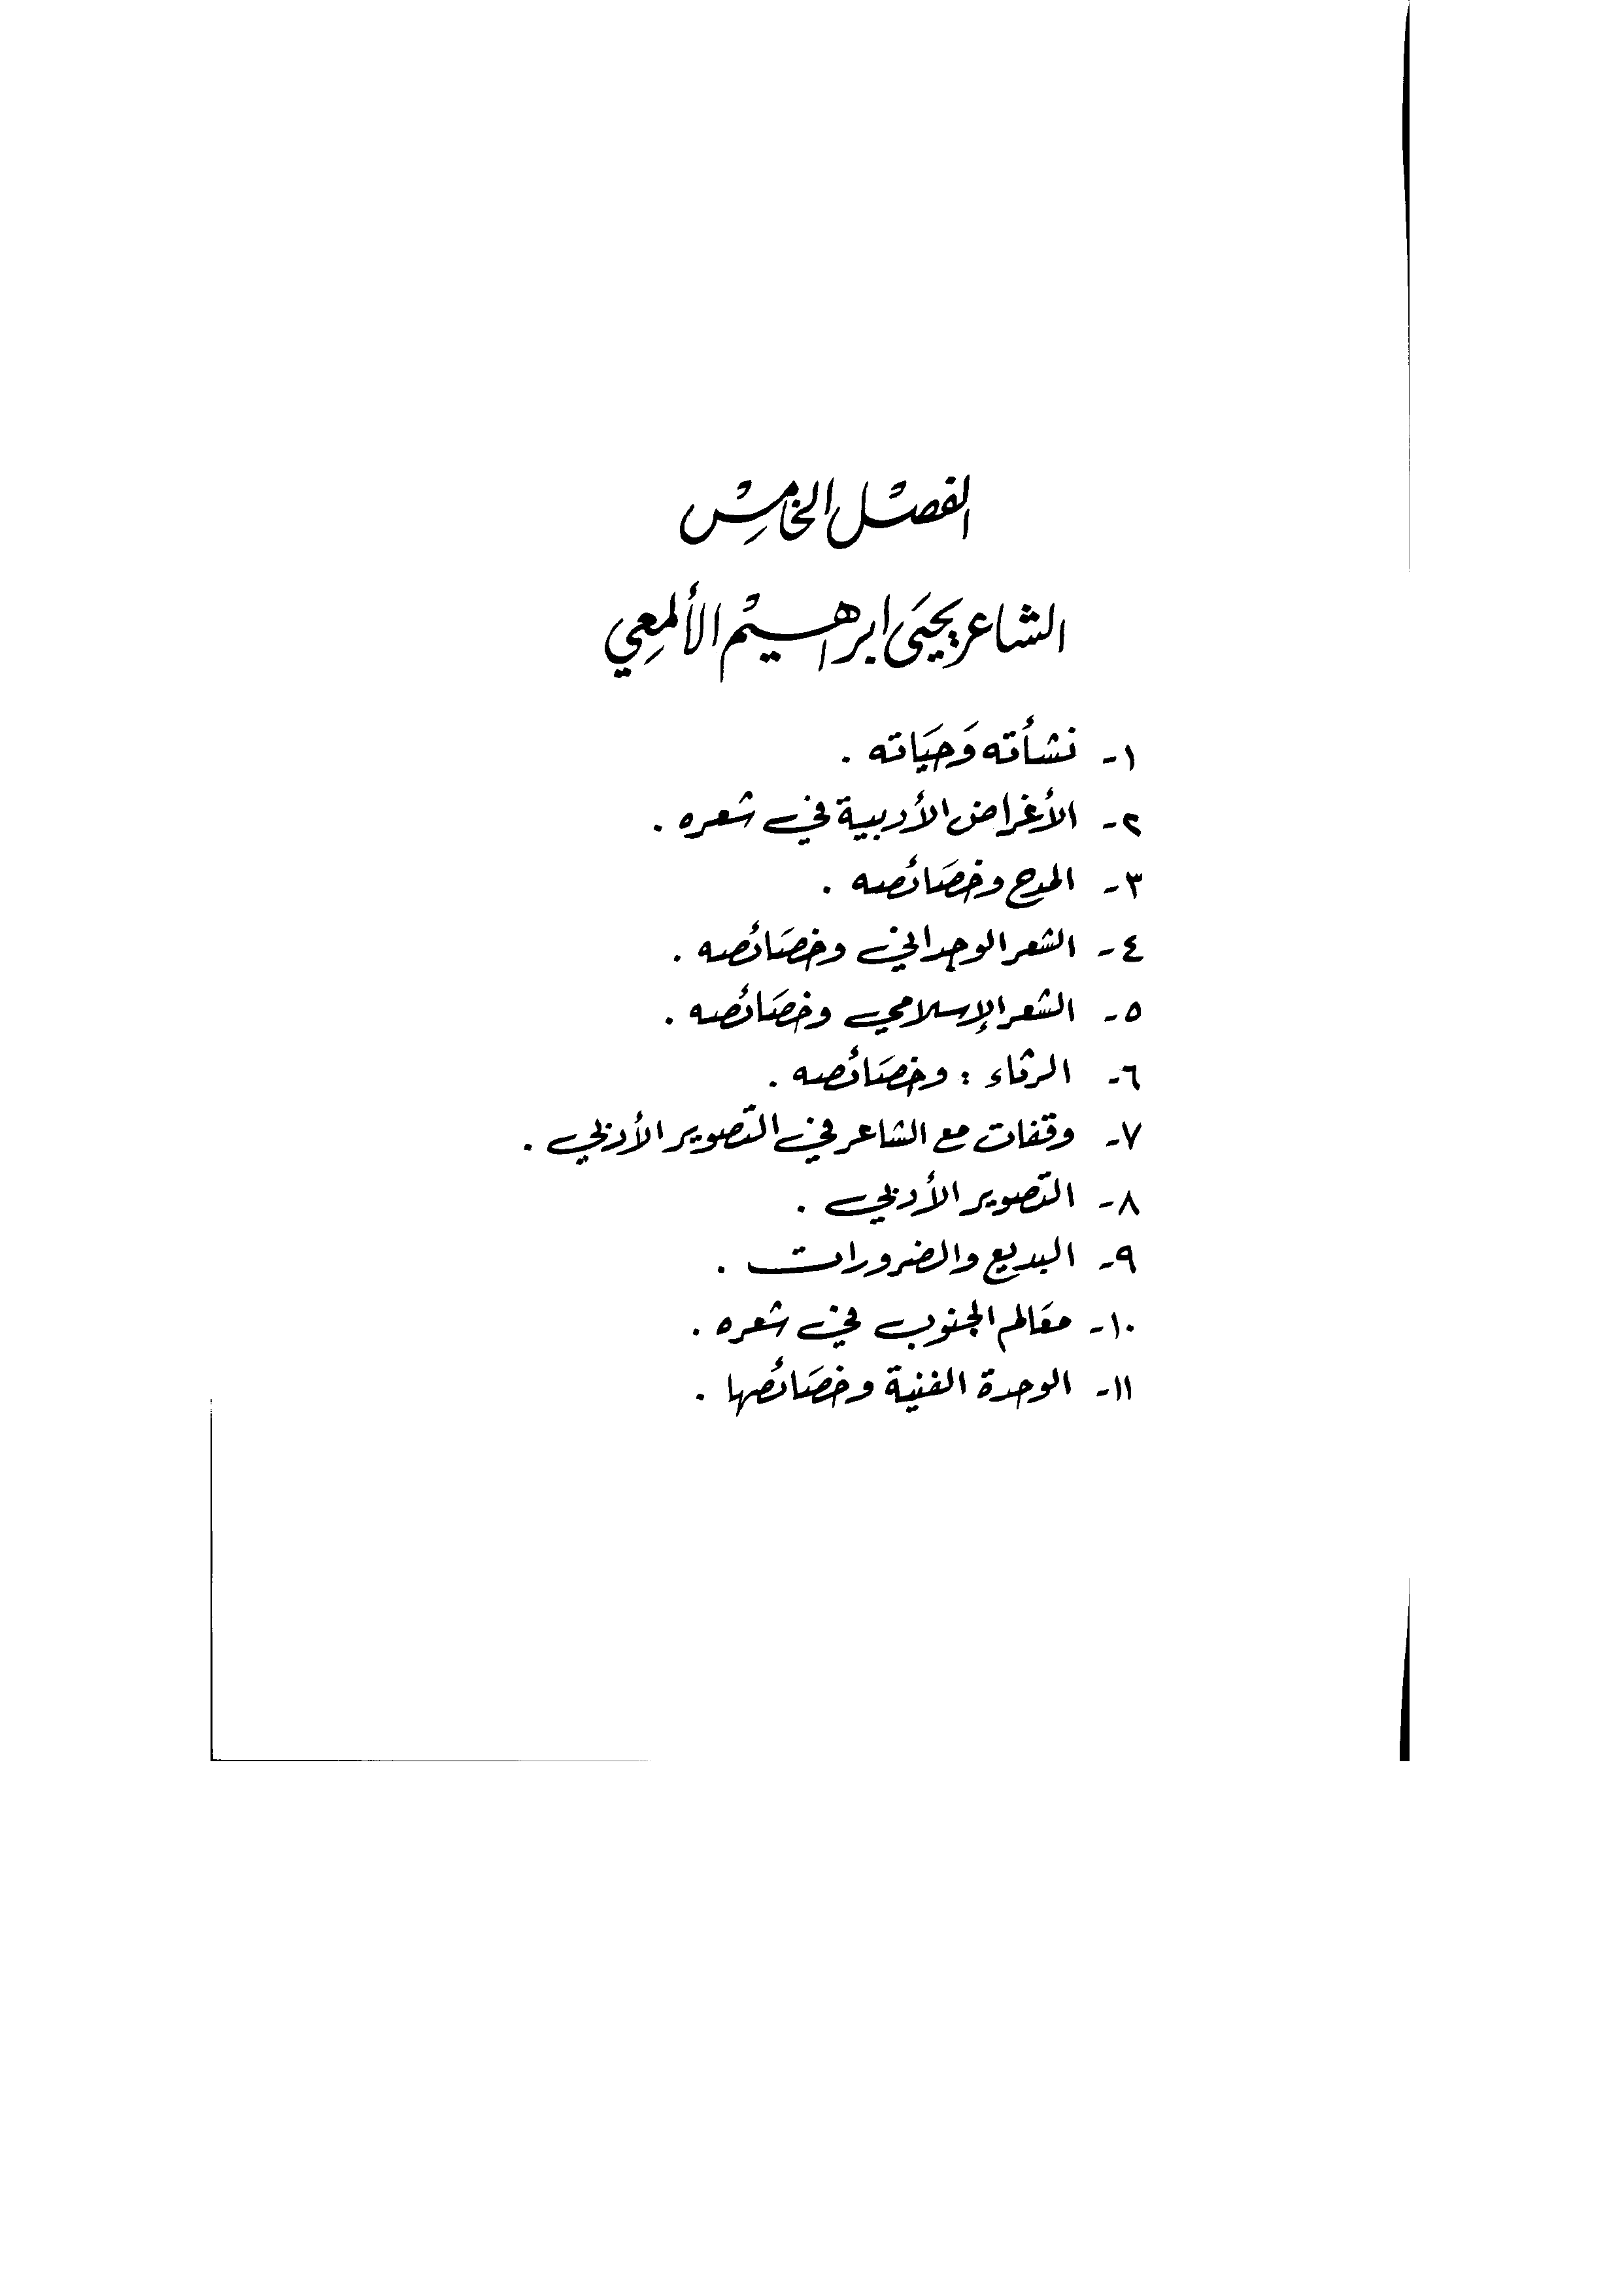 الفصل الخامس
الشاعر يحيى ابراهيم الألمعي
١- نشأته وَحيَاته .
٢- الأغراض الأدبية في شعره .
٣- المدح وخصَائصه .
٤- الشعر الوجداني وخصَائصه .
٥- الشعر الإسلامي وخصَائصه .
٦- الرثاء : وخصَائصه .
٧- وقفات مع الشاعر في التصوير الأدبي .
٨- التصوير الأدبي .
٩- البديع والضرورات .
١٠- معَالم الجنوب في شعره .
١١- الوحدة الفنية وخصَائصها .